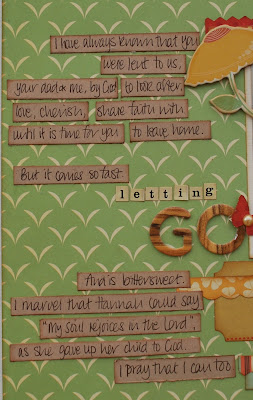 I have always known that you
were lent to us,
your dad & me, by God, to look after
love, cherish, share faith with
until it is time for you to leave home.
But it comes so fast.
letting
GO
And is bittersweet.
I marvel that Hannah could say
"My soul rejoices in the Lord",
as she gave up her child to God.
I pray that I can too.